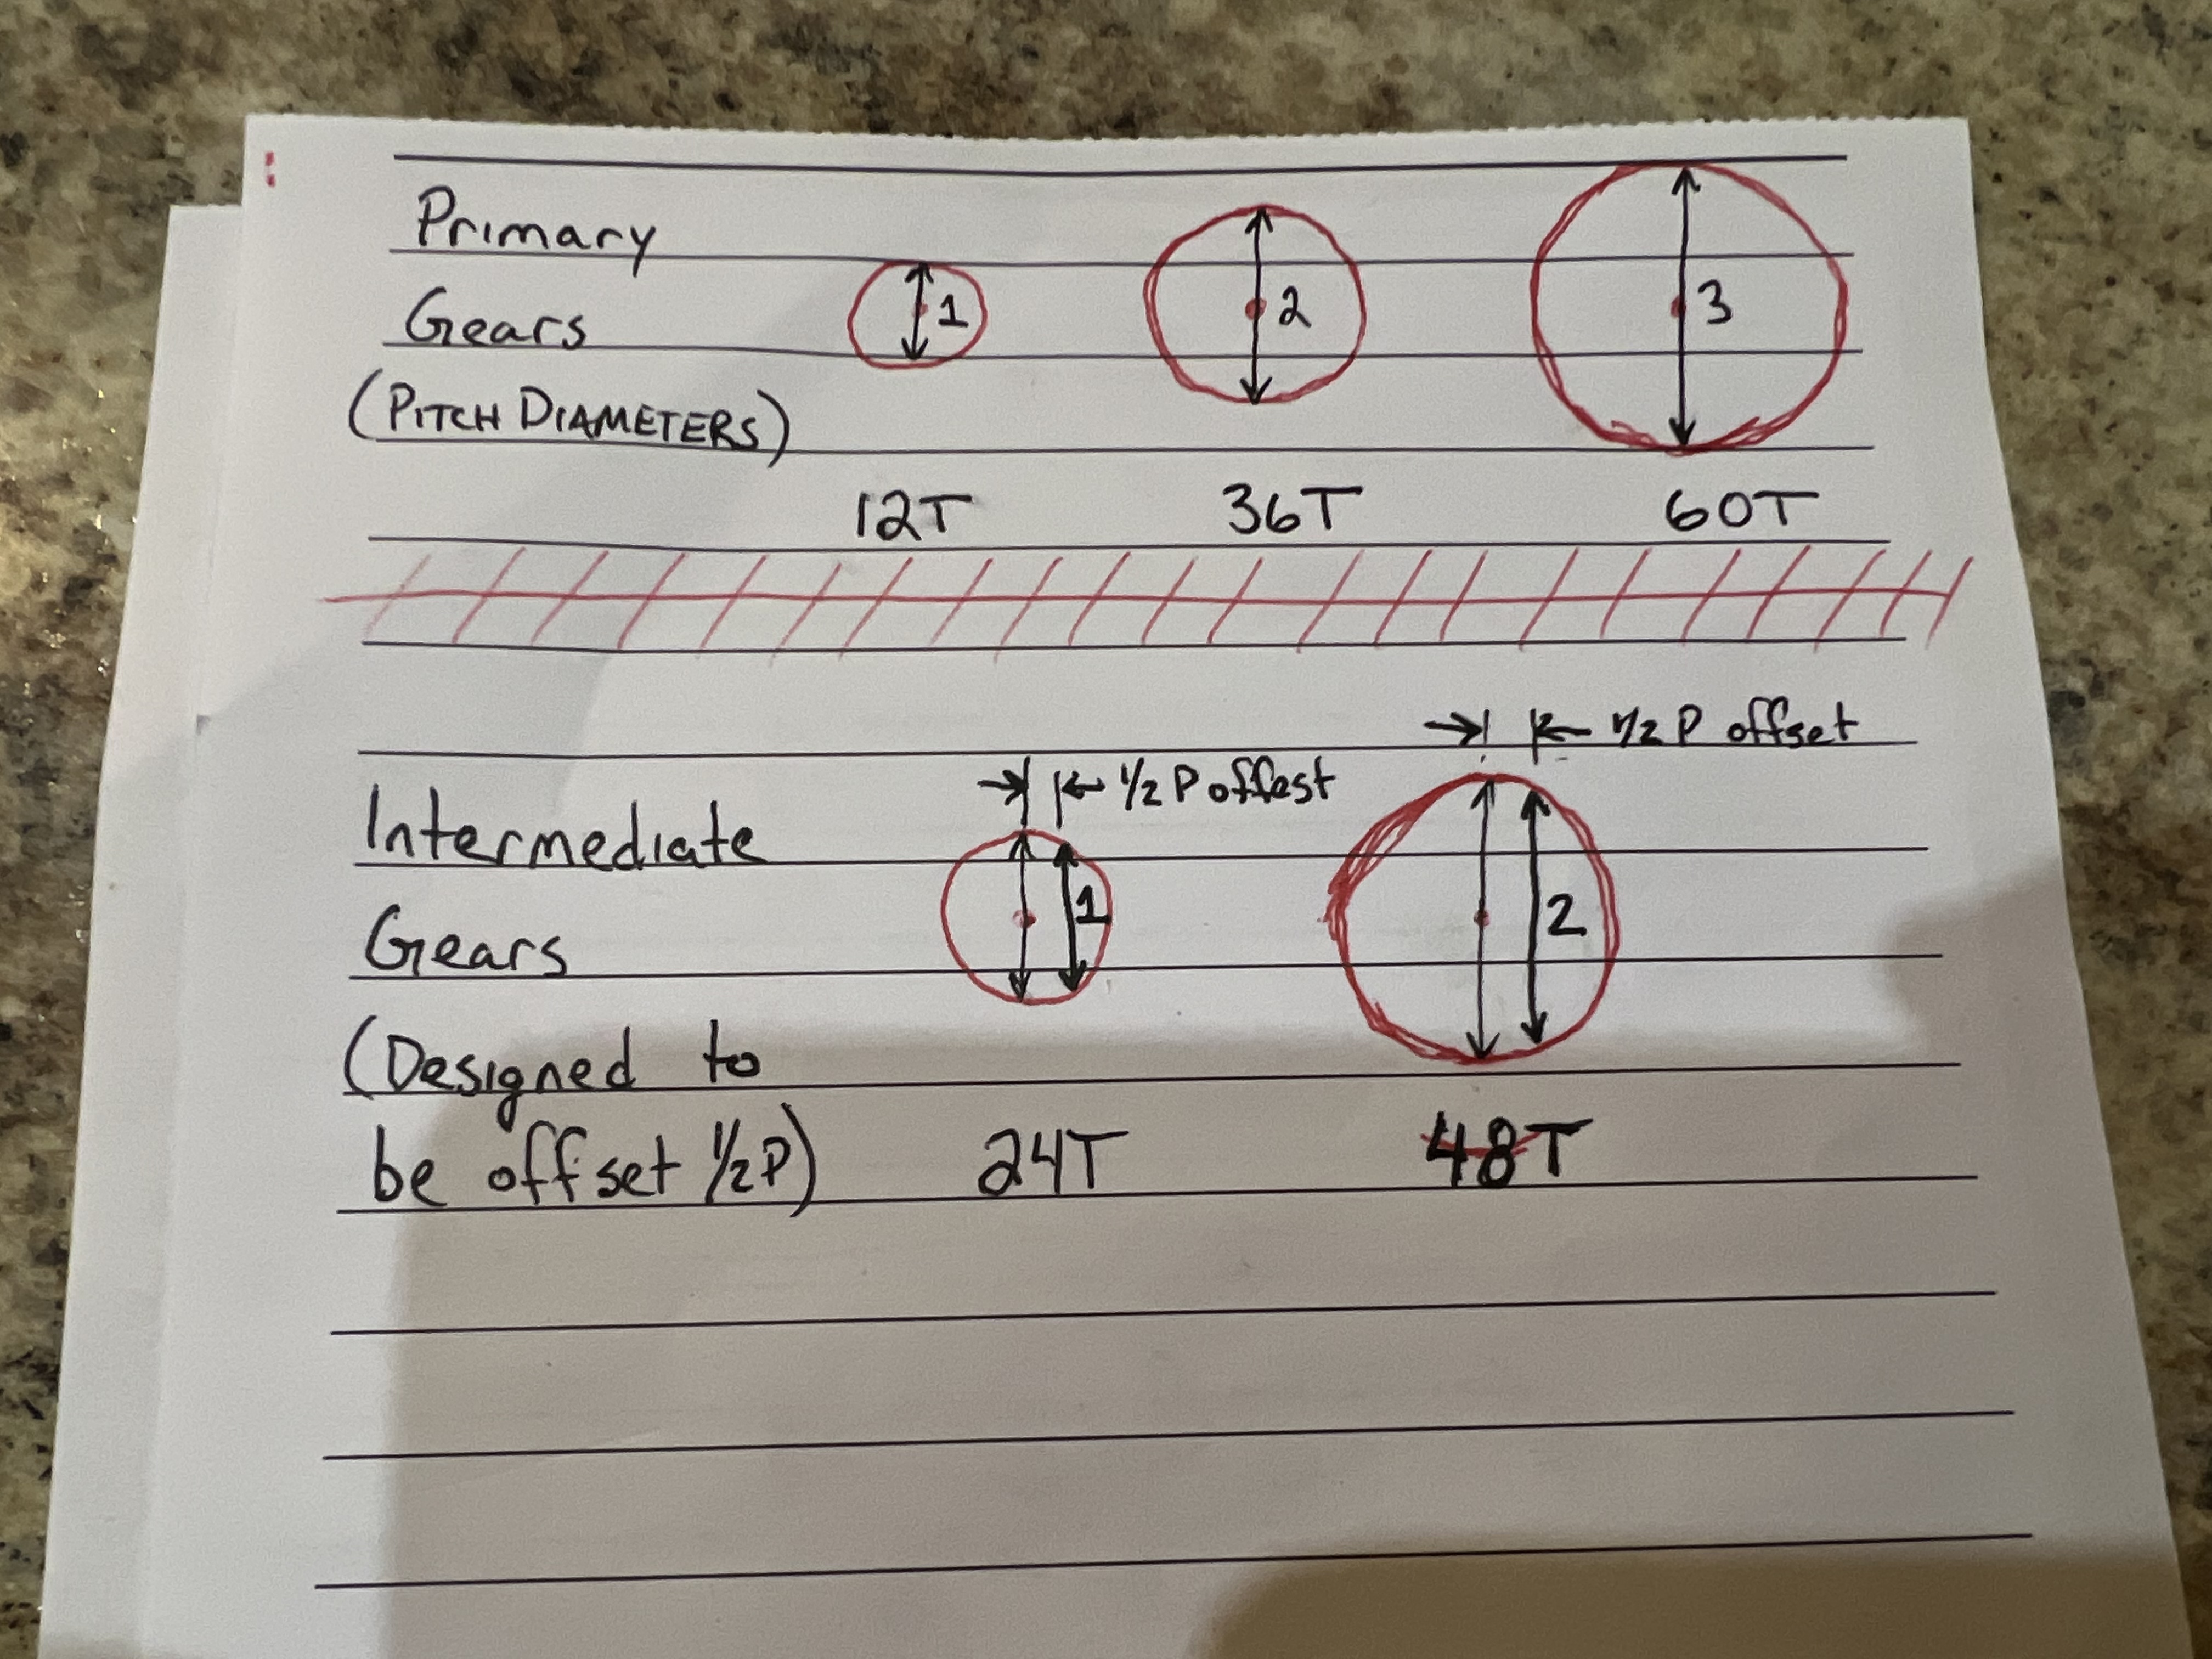 Primary
Gears
(PITCH DIAMETERS)
1
2
3
12T
36T
60T
1/2 P offset
1/2 P offest
Intermediate
Gears
1
2
(Designed to
be offset 1/2P)
24T
48T